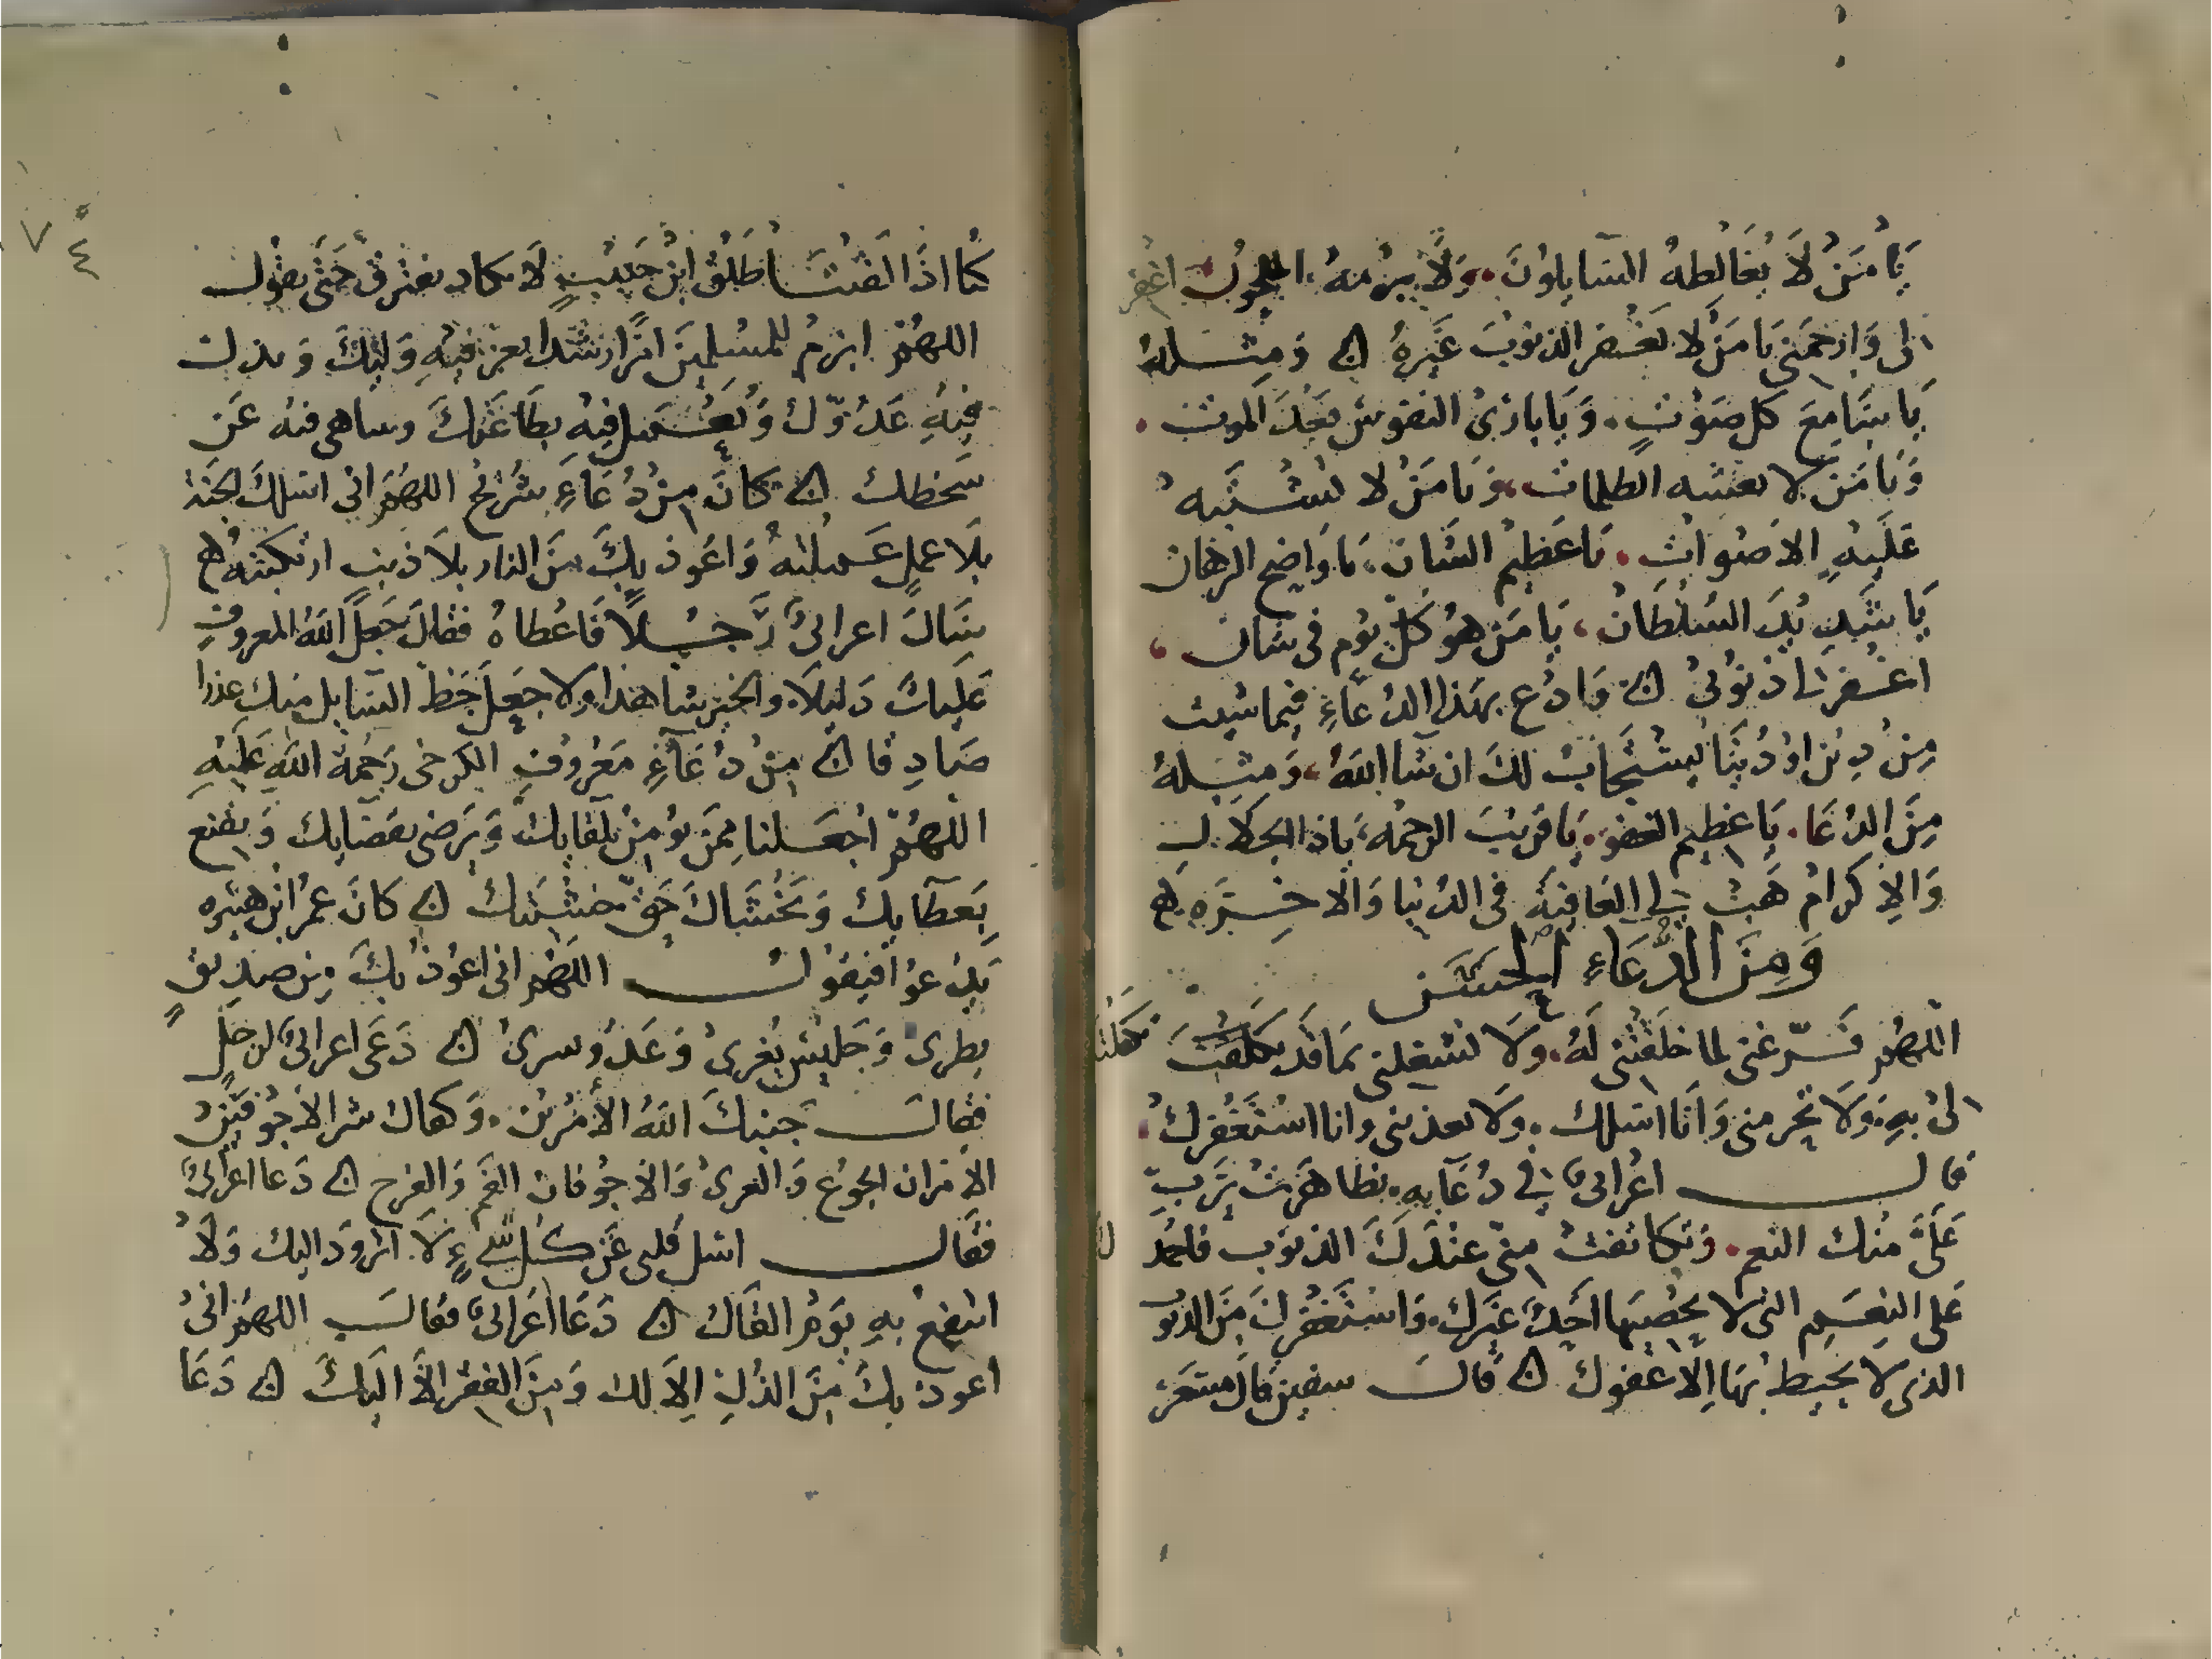 يَا مَنْ لَا يُغَالِطهُ السَّايِلونَ. وَلَا يبرمهُ الملحّونَ اغفر
لى وَارْحَمْنِى يَا مَنْ لا يَغْفر الذنوبَ غَيْرهُ ۞ وَمِثْله
يَا سَامِعَ كل صَوْتٍ. وَيَا بَارِئ النفوسِ بَعْدَ الموت.
وَيَا مَنْ لا تغشيه الظلمات، وَيَا مَنْ لا تشتَبه
عَلَيْهِ الاَصْوَاتِ. يَا عَظِيْم الشَّان، يَا وَاضِح البرهَان
يَا شَدِيْدَ السُلْطَان، يَا مَن هُوَ كلّ يَوْم فى شان،
اغْفر لى ذنُوْبِىْ ۞ وَادْعِ بهَذا الدُعَاءِ فيما شيت
مِنْ دِيْن اوْ دُنْيَا يُسْتَجَابْ لكَ ان شا اللهُ، وَمثلهُ
مِنَ الدُعَا. يَا عَظِيم العَفْوِ. يَا قريْبَ الرحمَه، يَا ذا الجَلَال
وَالاِكرام هَبْ لِى العَافِيَةَ فى الدُنْيَا وَالَاخِرَه ۞
وَمِنَ الدُّعَاءِ الحَسَن
اللهُم فَرّغنى لما خلَقْتَنى لَهُ. وَلَا تشغلنى بمَا قد تكفلتَ
لىْ بِهِ. وَلَا تَحْرمنى وَانَا اسَلك. وَلَا تعذبنى وانا اسْتَغْفرك.
قال اعْرَابىٌ فِى دُعَايِهِ. تظاهَرَتْ يَرَبِّ
عَلَىَّ مِنْكَ النعم. وَتكاثفتْ مِنّى عنْدَكَ الذنوب فاحمدك
عَلى النِعَم التى لا يحْصِيهَا احَدٌ غيرك. وَاسْتَغْفِركَ مِنَ الذنوب
الذى لا يحيط بهَا اِلّا عَفوك ۞ قال سفين قال مسعر
كُنا اذَا لَقيْنا طَلْق ابْن حَبِيْبٍ لَا يكاد يفترق حَتى يقول
اللهُم ابْرمْ للمُسْلِمِيْنَ امْرًا رشدًا يعز فيْهِ وَليكَ وَيذل
فِيهِ عَدُوّك وَيُعْمل فِيْهِ بطَاعَتِكَ ويناهى فيه عَن
سَخطك ۞ كانَ مِنْ دُعَاءِ شُرَيْح اللهُم انى اسَلكَ الجَنة
بلَا عملٍ عَملْتهُ وَاعُوذ بِكَ مِنَ النار بلَا ذنبٍ ارتكبتهُ ۞
سَالَ اعرابىٌ رَجُلًا فَاعْطَاهُ فقالَ جَعَل اللهُ المعروف
عَلَيكَ دَليلَا والخير شاهدا ولا جعل حَظ السَّايل منك عذرا
صَادِقا ۞ مِنْ دُعَاءِ مَعْرُوفِ الكرخى رَحْمَة اللهِ عَلَيْهِ
اللهُمّ اجْعَلنا مِمَن يُومِنُ بلقايِك وَيَرضى بقضَايِك وَيقنع
بِعَطَايِك وَيَخْشَاكَ حَقّ خشيَتِكَ ۞ كانَ عمر ابْن هبيره
يَدْعوا فيقول اللهُم انى اعُوذ بِكَ مِن صدِيْقٍ
يطرى وَجَلِيْسٍ يُغرىْ وَعَدُو يسرىْ ۞ دَعَى اعرابىٌ لرجلٍ
فقال جَنبكَ اللهُ الأمَرّين. وَكفاك شر الأجْوفَيْن
الامَران الجُوْع وَالعرىْ وَالاجْوفان الفم وَالفرج ۞ دَعا اعْرَابىٌ
فقال اسَل قلبى عَن كل شَىءٍ لَا اتزوّد اليك وَلَا
انتفع به يَوْم القَاك ۞ دَعَا اعْرَابىٌ فقال اللهُم انىْ
اعوذ بِكَ مِنَ الذلِ اِلا لك وَمِنَ الفقر الَّا اليكَ ۞ دَعَا